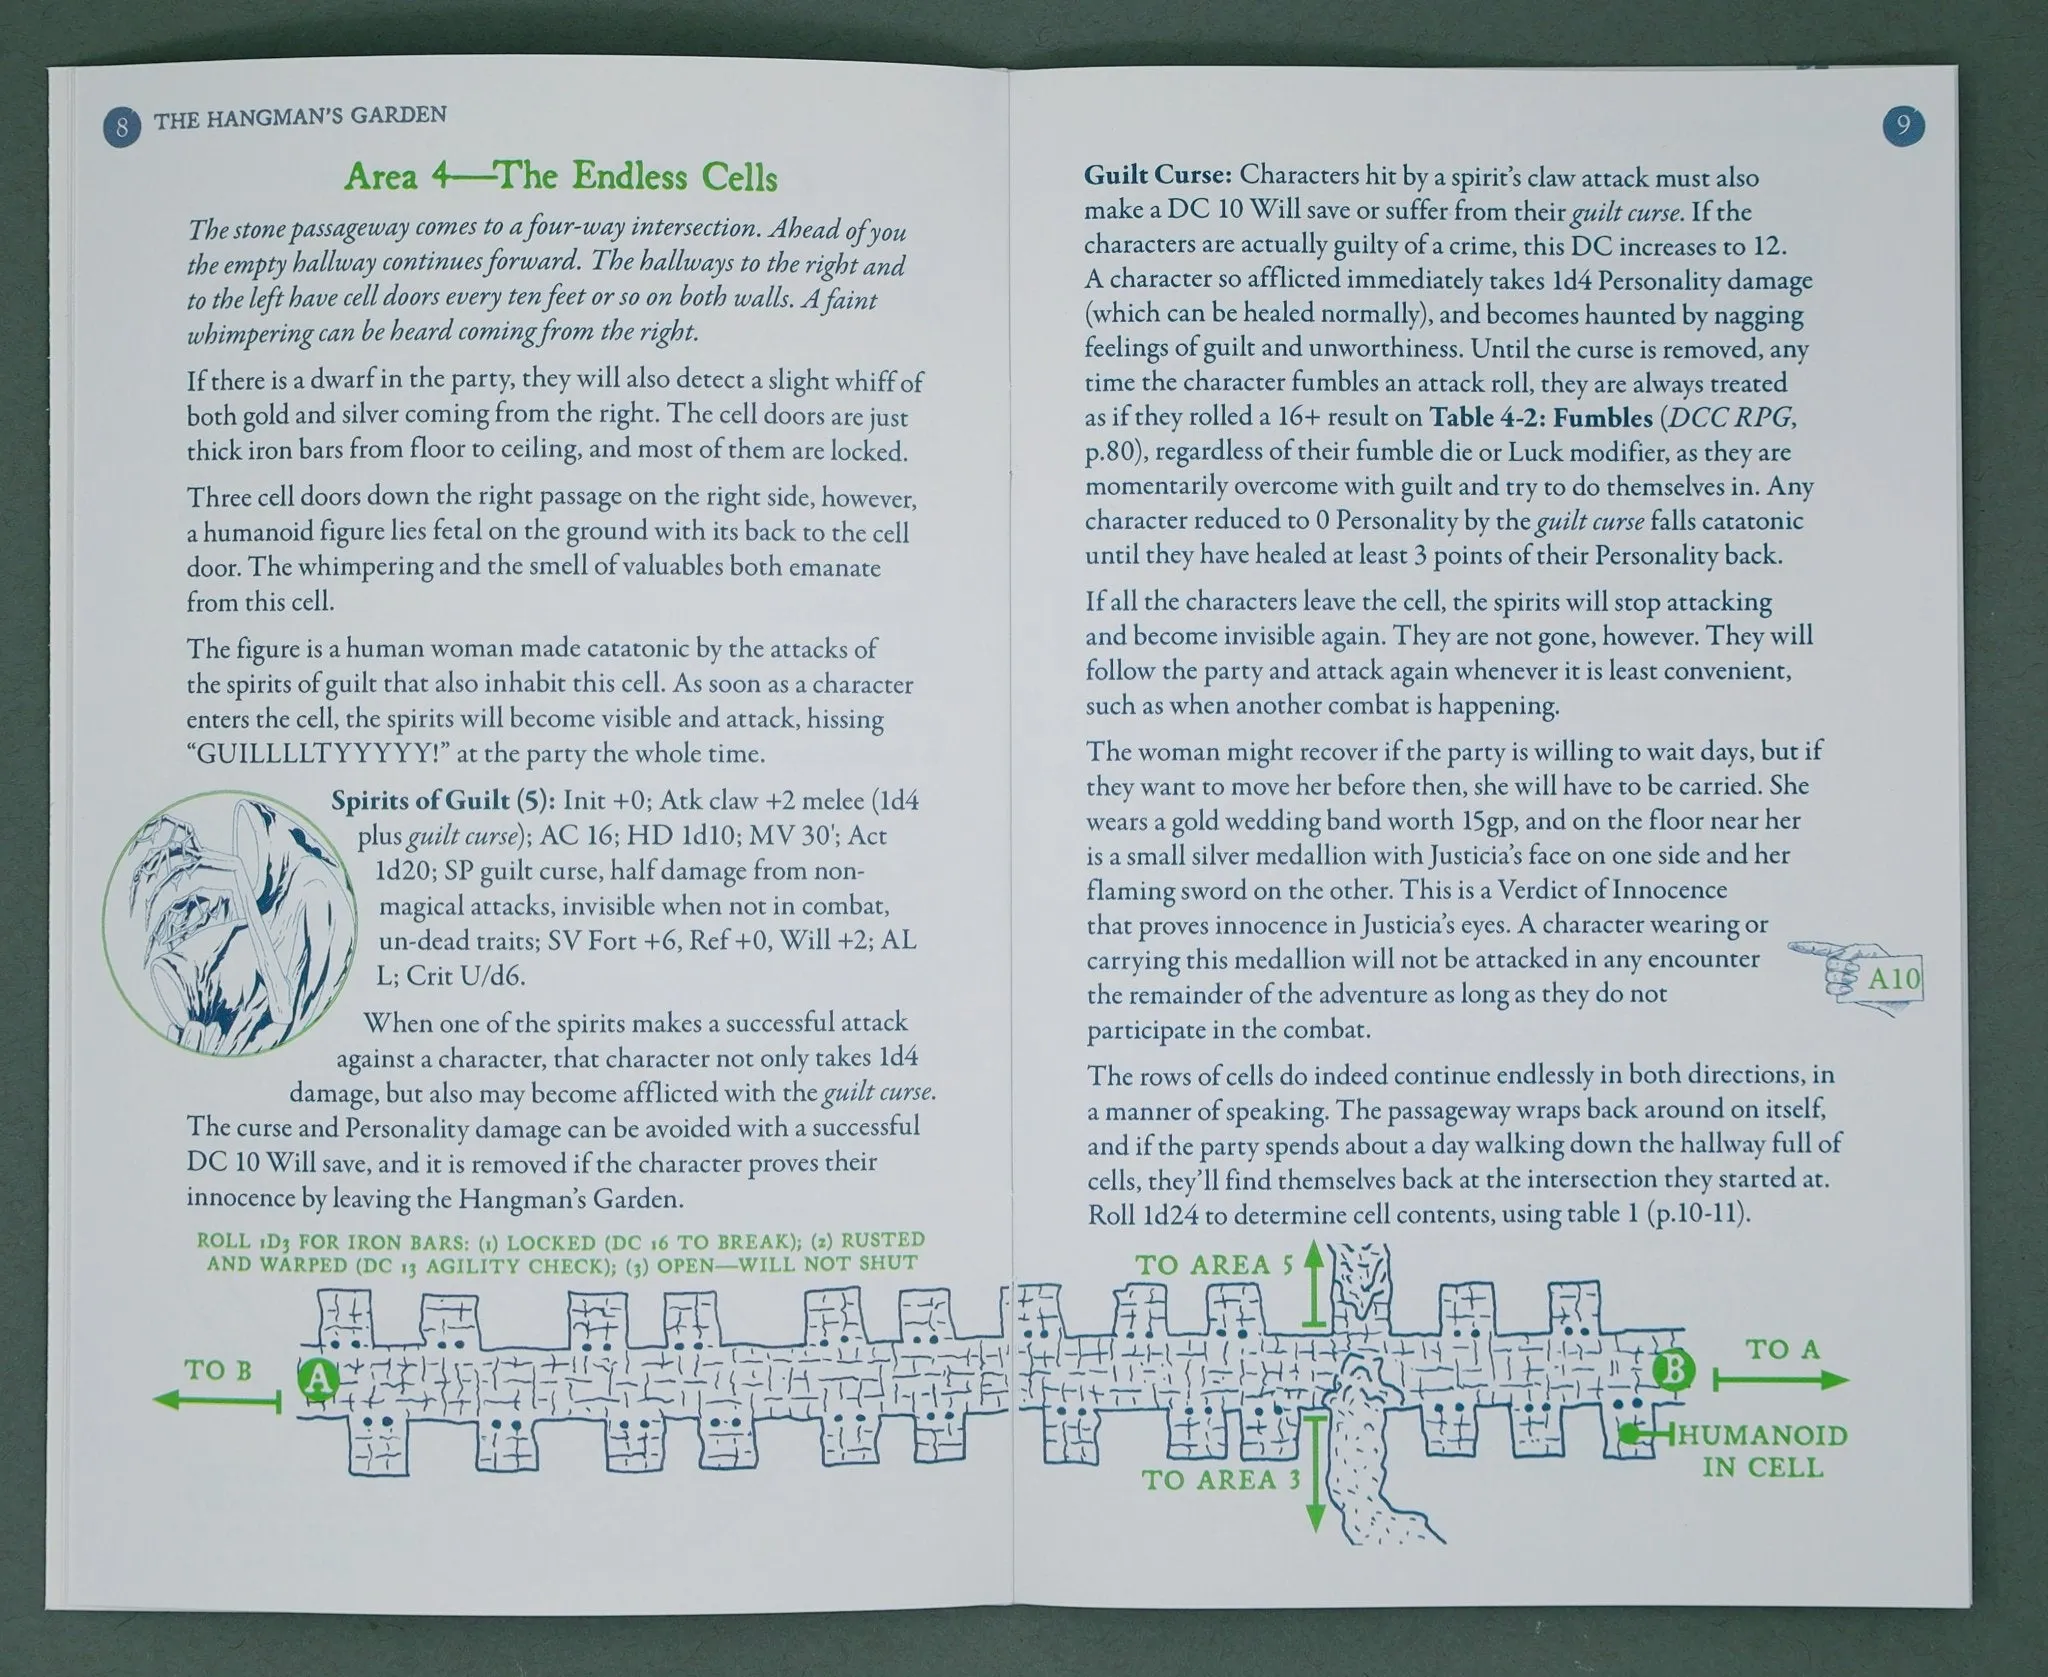 8 THE HANGMAN'S GARDEN
Area 4—The Endless Cells
The stone passageway comes to a four-way intersection. Ahead of you
the empty hallway continues forward. The hallways to the right and
to the left have cell doors every ten feet or so on both walls. A faint
whimpering can be heard coming from the right.
If there is a dwarf in the party, they will also detect a slight whiff of
both gold and silver coming from the right. The cell doors are just
thick iron bars from floor to ceiling, and most of them are locked.
Three cell doors down the right passage on the right side, however,
a humanoid figure lies fetal on the ground with its back to the cell
door. The whimpering and the smell of valuables both emanate
from this cell.
The figure is a human woman made catatonic by the attacks of
the spirits of guilt that also inhabit this cell. As soon as a character
enters the cell, the spirits will become visible and attack, hissing
“GUILLLLTYYYYY!” at the party the whole time.
Spirits of Guilt (5): Init +0; Atk claw +2 melee (1d4
plus guilt curse); AC 16; HD 1d10; MV 30'; Act
1d20; SP guilt curse, half damage from non-
magical attacks, invisible when not in combat,
un-dead traits; SV Fort +6, Ref +0, Will +2; AL
L; Crit U/d6.
When one of the spirits makes a successful attack
against a character, that character not only takes 1d4
damage, but also may become afflicted with the guilt curse.
The curse and Personality damage can be avoided with a successful
DC 10 Will save, and it is removed if the character proves their
innocence by leaving the Hangman's Garden.
ROLL 1D3 FOR IRON BARS: (1) LOCKED (DC 16 TO BREAK); (2) RUSTED
AND WARPED (DC 13 AGILITY CHECK); (3) OPEN—WILL NOT SHUT
TO B
A
9
Guilt Curse: Characters hit by a spirit's claw attack must also
make a DC 10 Will save or suffer from their guilt curse. If the
characters are actually guilty of a crime, this DC increases to 12.
A character so afflicted immediately takes 1d4 Personality damage
(which can be healed normally), and becomes haunted by nagging
feelings of guilt and unworthiness. Until the curse is removed, any
time the character fumbles an attack roll, they are always treated
as if they rolled a 16+ result on Table 4-2: Fumbles (DCC RPG,
p.80), regardless of their fumble die or Luck modifier, as they are
momentarily overcome with guilt and try to do themselves in. Any
character reduced to 0 Personality by the guilt curse falls catatonic
until they have healed at least 3 points of their Personality back.
If all the characters leave the cell, the spirits will stop attacking
and become invisible again. They are not gone, however. They will
follow the party and attack again whenever it is least convenient,
such as when another combat is happening.
The woman might recover if the party is willing to wait days, but if
they want to move her before then, she will have to be carried. She
wears a gold wedding band worth 15gp, and on the floor near her
is a small silver medallion with Justicia's face on one side and her
flaming sword on the other. This is a Verdict of Innocence
that proves innocence in Justicia's eyes. A character wearing or
carrying this medallion will not be attacked in any encounter
the remainder of the adventure as long as they do not
participate in the combat.
A10
The rows of cells do indeed continue endlessly in both directions, in
a manner of speaking. The passageway wraps back around on itself,
and if the party spends about a day walking down the hallway full of
cells, they'll find themselves back at the intersection they started at.
Roll 1d24 to determine cell contents, using table 1 (p.10-11).
TO AREA 5
B
TO A
TO AREA 3
HUMANOID
IN CELL